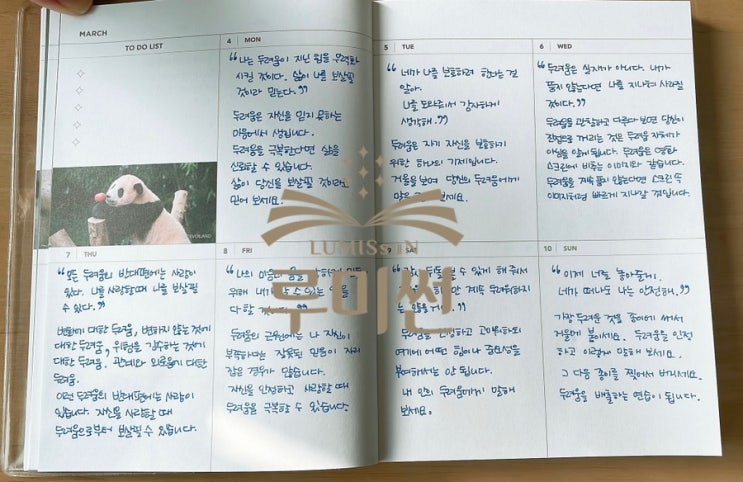 MARCH
TO DO LIST
4 MON
"나는 두려움이 지닌 힘을 무력화
시킬 것이다. 삶이 나를 보살필
것이라 믿는다."
두려움은 자신을 믿지 못하는
마음에서 생깁니다.
두려움을 극복한다면 삶을
신뢰할 수 있습니다.
삶이 당신을 보살필 것이라고
믿어 보세요.
5 TUE
"네가 나를 보호하려 한다는 건
알아.
나를 도와줘서 감사하게
생각해."
두려움은 자기 자신을 보호하기
위한 하나의 기제입니다.
거울을 보며 당신의 두려움에게
말을 보세요.
6 WED
"두려움은 실재가 아니다. 내가
품지 않는다면 나를 지나쳐 사라질
것이다."
두려움을 관찰하고 다루다 보면 당신이
진정으로 꺼리는 것은 두려움 자체가
아님을 알게 됩니다. 두려움은 영화
스크린에 비추는 이미지와 같습니다.
두려움을 계속 품지 않는다면 스크린 속
이미지처럼 빠르게 지나갈 것입니다.
EVERLAND
7 THU
"모든 두려움의 반대편에는 사랑이
있다. 나를 사랑할 때 나를 보살필
수 있다."
변화에 대한 두려움, 변하지 않는 것에
대한 두려움, 위험을 감수하는 것에
대한 두려움. 관계와 외로움에 대한
두려움.
이런 두려움의 반대편에는 사랑이
있습니다. 자신을 사랑할 때
두려움으로부터 보살필 수 있습니다.
8 FRI
"나의 마음
위해 내가 할 수 있는 일을
다 할 것이다."
두려움의 근원에는 나 자신이
부족하다는 잘못된 믿음이 자리
잡은 경우가 많습니다.
자신을 인정하고 사랑할 때
두려움을 극복할 수 있습니다.
9 SAT
수 있게 해 줘서
계속 두려워하지
는 않을 거야."
두려움을 인정하고 고마워하되
여기에 어떤 힘이나 중요성을
부여해서는 안 됩니다.
내 안의 두려움에게 말해
보세요.
10 SUN
"이제 너를 놓아줄게.
네가 떠나도 나는 안전해."
가장 두려운 것을 종이에 써서
거울에 붙이세요. 두려움을 인정
하고 이렇게 말해 보세요.
그 다음 종이를 찢어서 버리세요.
두려움을 배출하는 연습이 됩니다.
LUMISSEN
루미썬